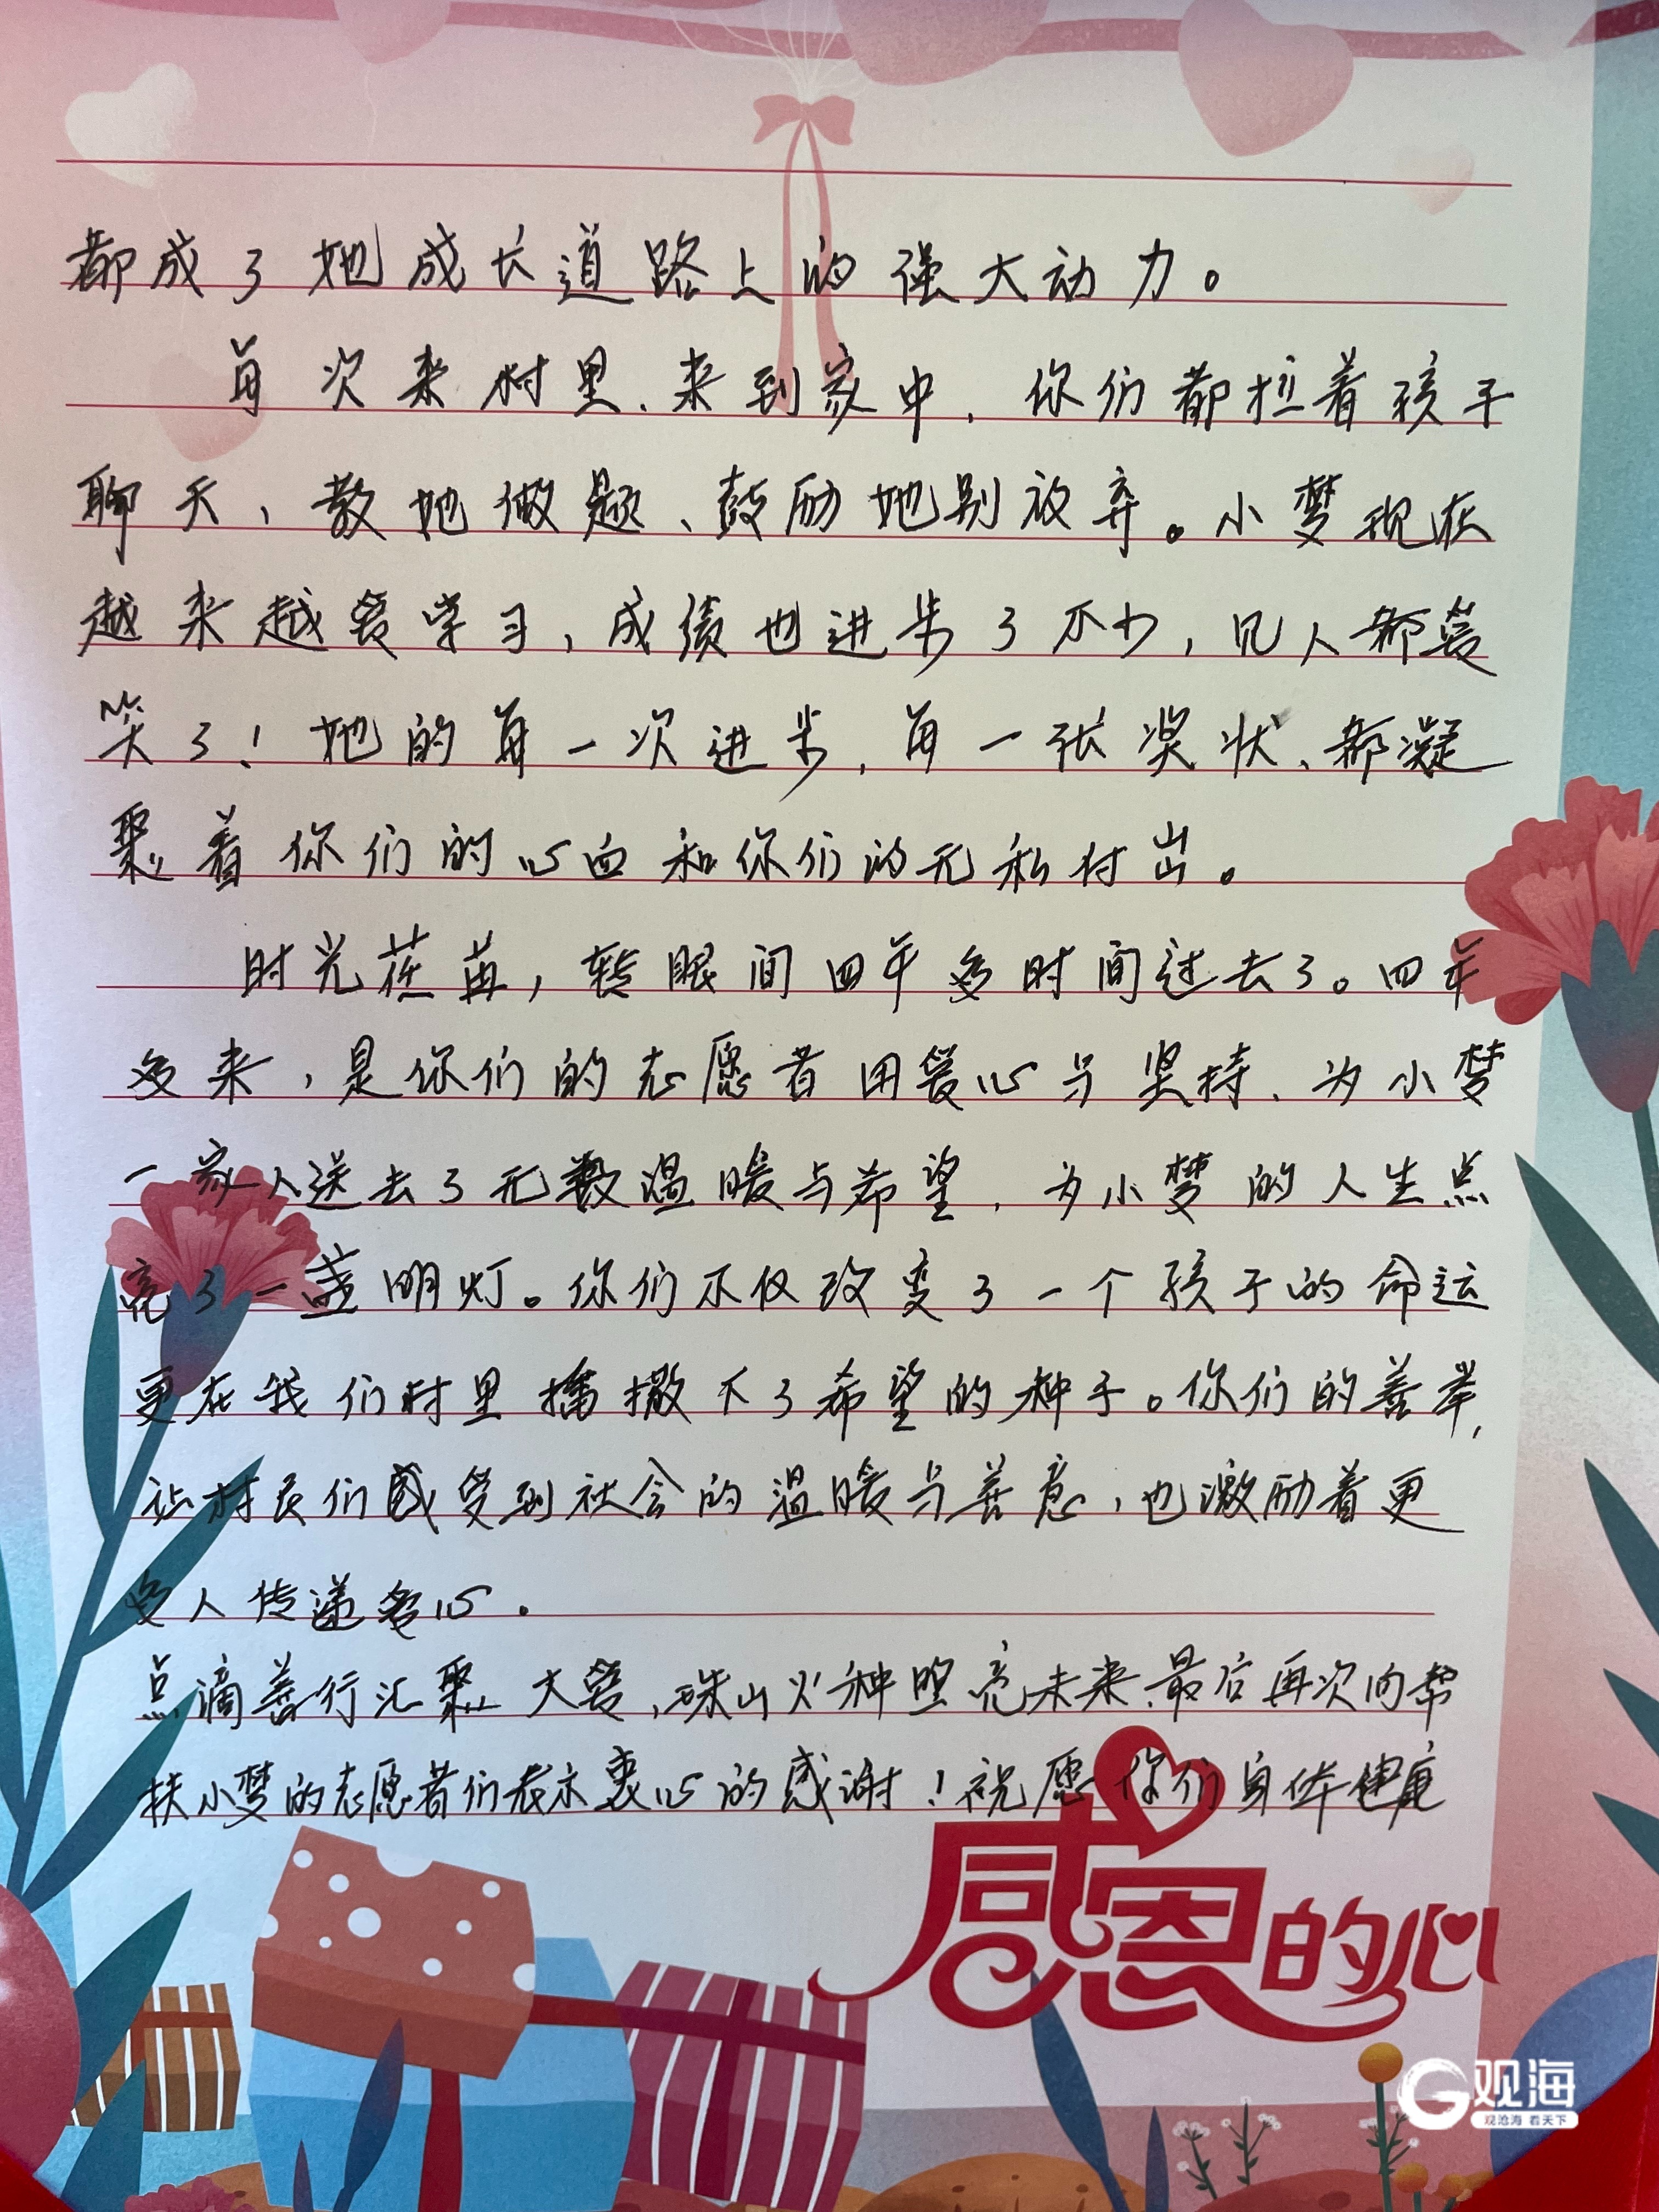 都成了她成长道路上的强大动力。
每次来村里、来到家中，你们都拉着孩子
聊天，教她做题、鼓励她别放弃。小梦现在
越来越爱学习，成绩也进步了不少，见人都爱
笑了！她的每一次进步，每一张奖状、都凝
聚着你们的心血和你们的无私付出。
时光荏苒，转眼间四年多时间过去了。四年
多来，是你们的志愿者用爱心与坚持、为小梦
一家人送去了无数温暖与希望，为小梦的人生点
亮了一盏明灯。你们不仅改变了一个孩子的命运
更在我们村里播撒下了希望的种子。你们的善举，
让村民们感受到社会的温暖与善意，也激励着更
多人传递爱心.
点滴善行汇聚大爱，珠山火种照亮未来、最后再次向帮
扶小梦的志愿者们表示衷心的感谢！祝愿你们身体健康
感恩的心
观海
观沧海 看天下